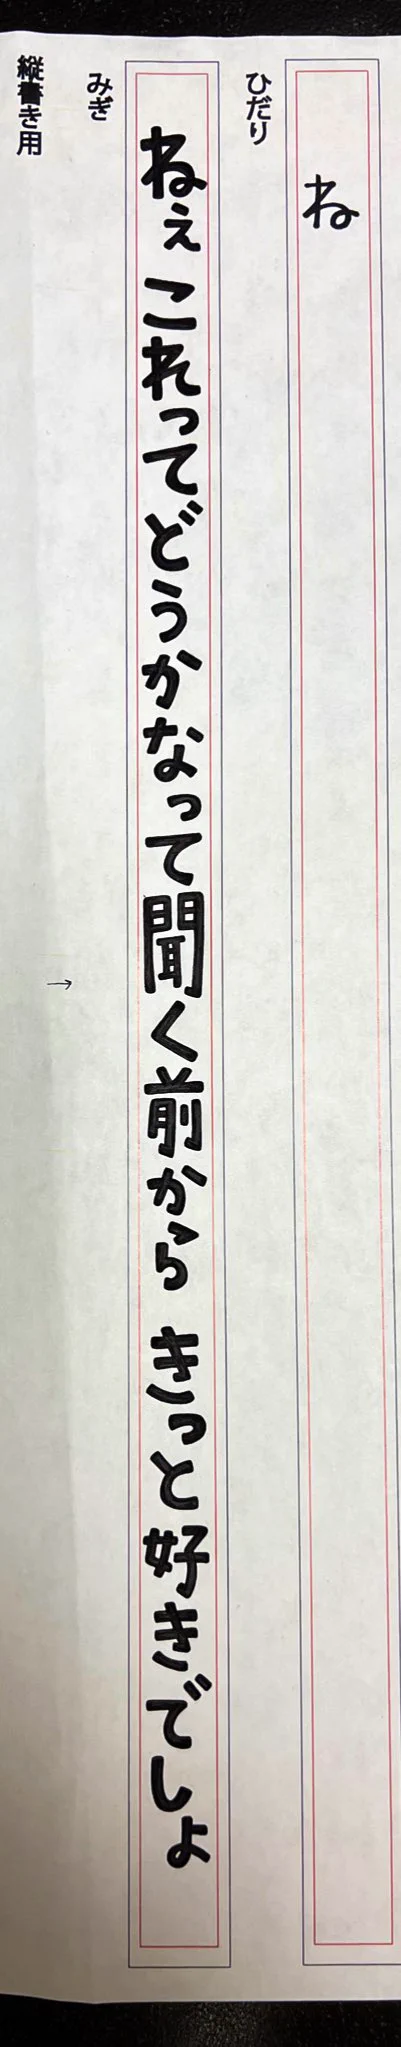 ひだり
ね
みぎ
ねぇ これってどうかなって聞く前から きっと好きでしょ
→
縦書き用